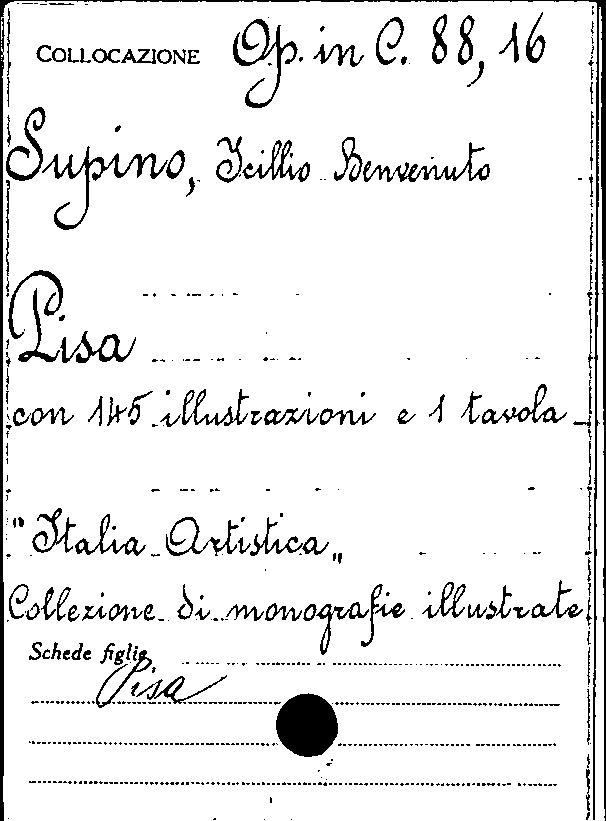 COLLOCAZIONE Op. in C. 88, 16
Supino, Icillio Benvenuto
Pisa
con 145 illustrazioni e 1 tavola
"Italia Artistica„
Collezione di monografie illustrate
Schede figlie
Pisa